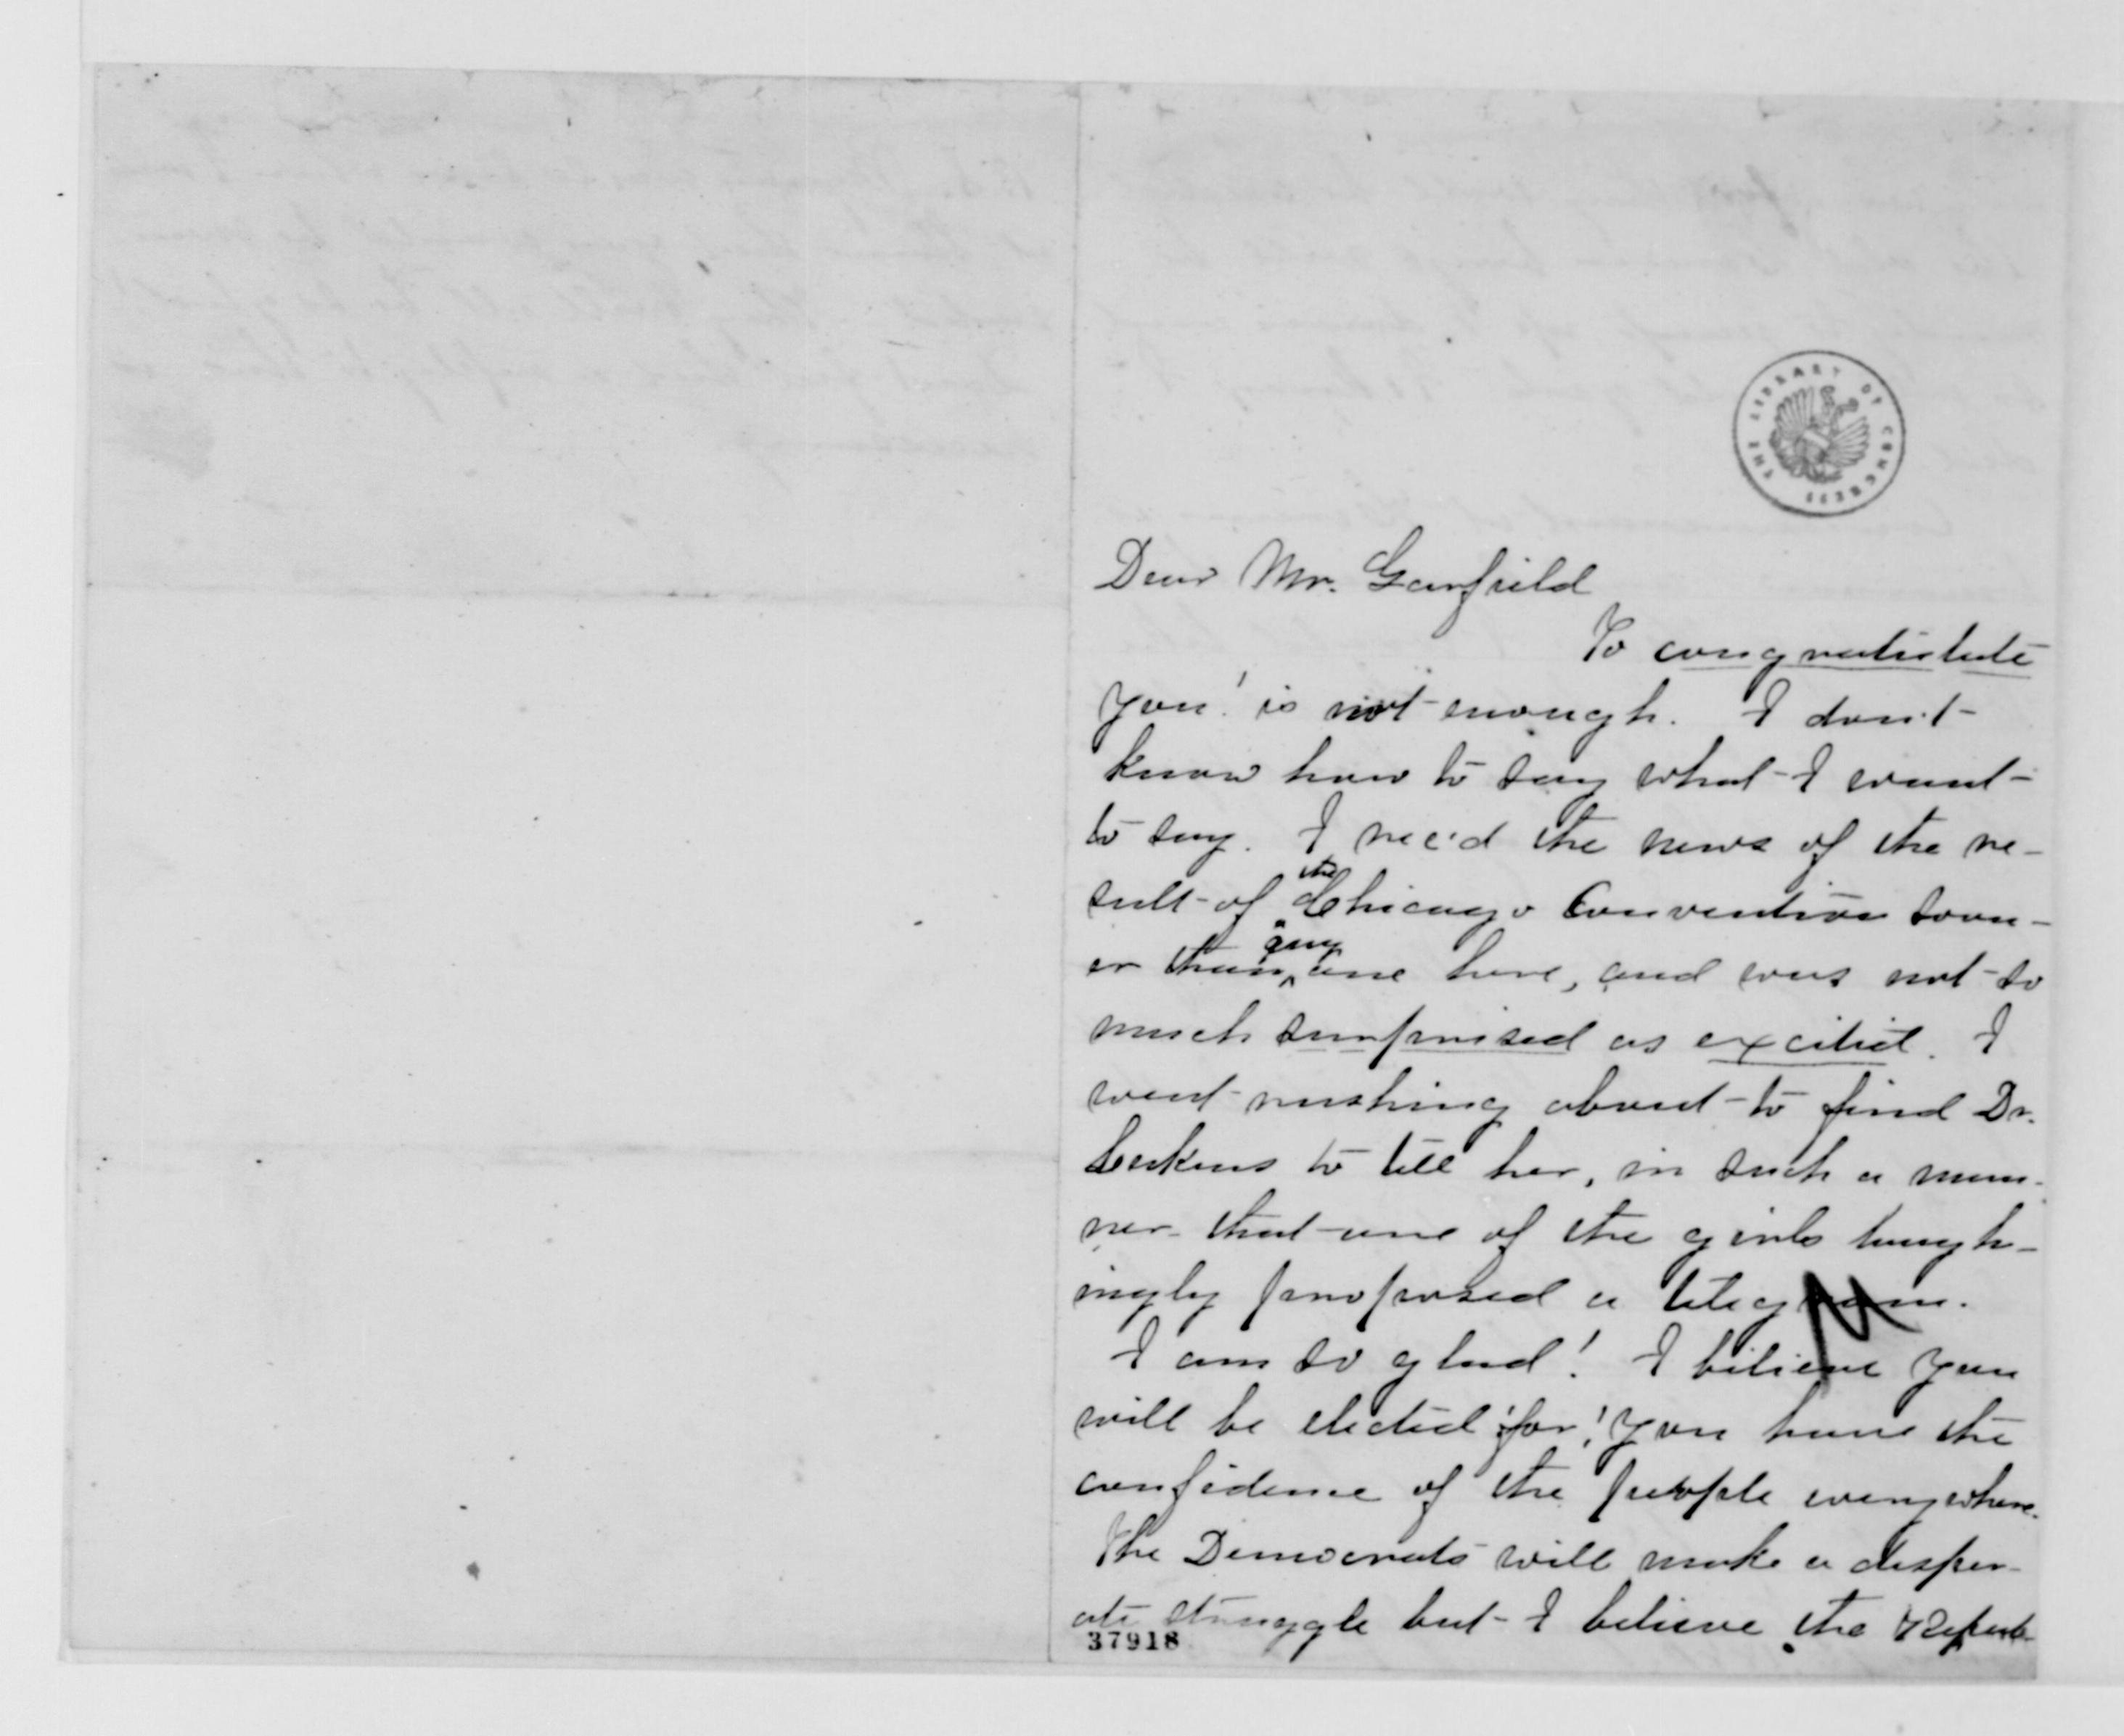 THE LIBRARY OF CONGRESS
Dear Mr. Garfield
To congratulate
you! is not enough. I don't
know how to say what I want
to say. I rec'd the news of the re-
sult of the Chicago Convention soon-
er than any one here, and was not so
much surprised as excited. I
went rushing about to find Dr.
to tell her, in such a man-
ner that one of the girls laugh-
ingly proposed a telegram.
I am so glad! I believe you
will be elected for! you have the
confidence of the people everywhere.
The Democrats will make a desper-
ate struggle but I believe the Repub-
37918